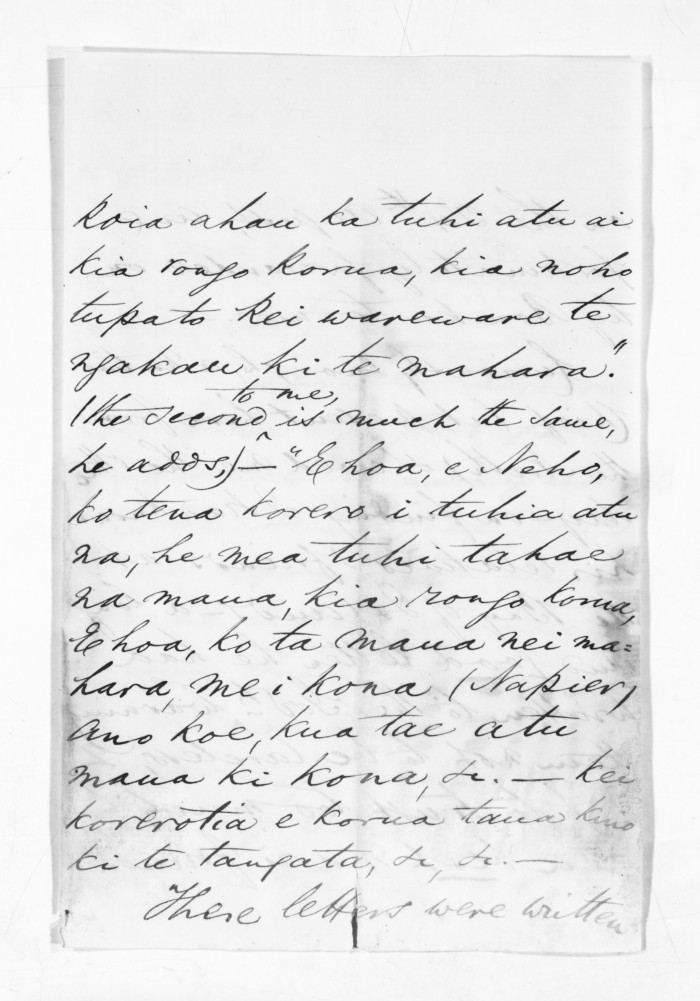 koia ahau ka tuhi atu ai
kia rongo korua, kia noho
tupato kei wareware te
ngakau ki te mahara."
to me,
(the second ^ is much the same,
he adds,) – "E hoa, e Neho,
ko tena korero i tuhia atu
na, he mea tuhi tahae
na maua, kia rongo korua,
E hoa, ko ta maua nei ma=
hara, me i kona (Napier)
ano koe, kua tae atu
maua ki kona, &c. – kei
korerotia e korua taua kino
ki te tangata, &c, &c. –
These letters were written